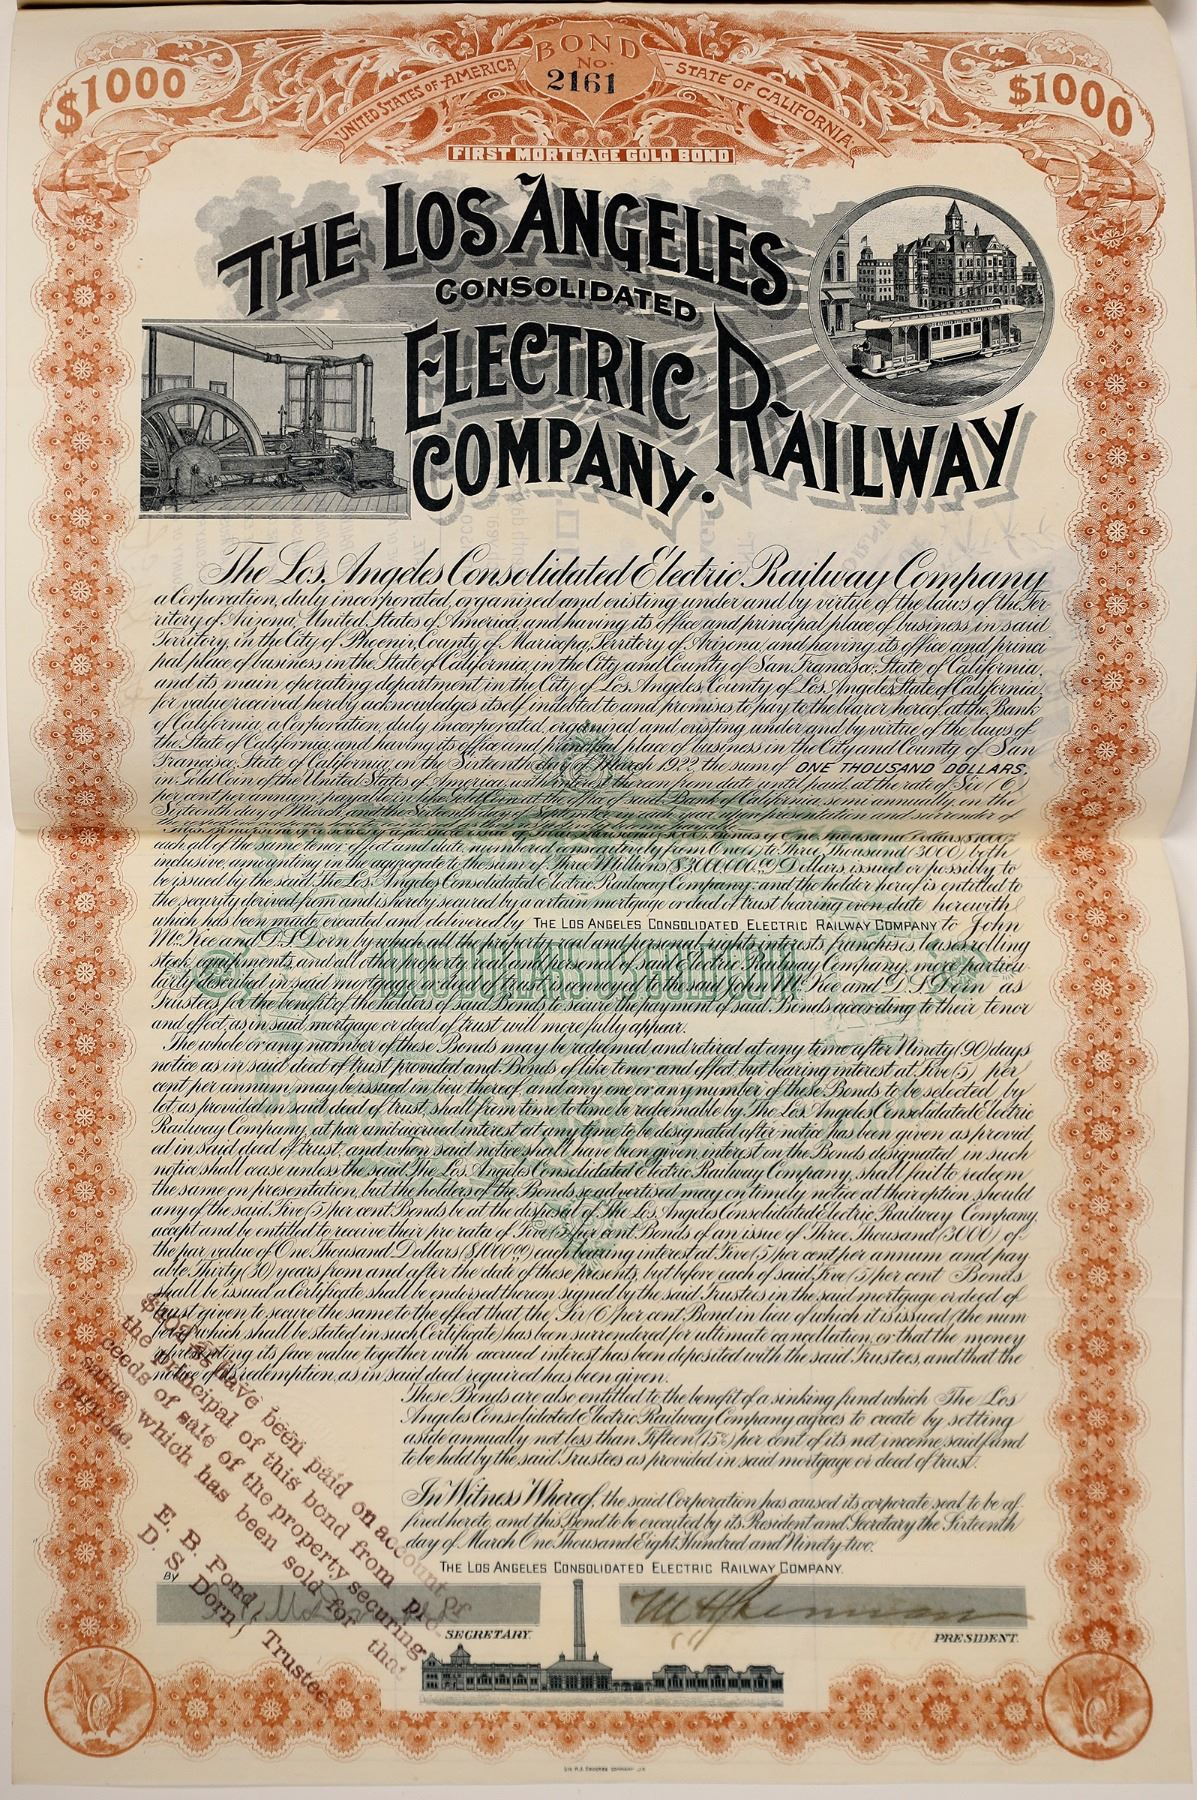 BOND
No.
2161
UNITED STATES OF AMERICA
STATE OF CALIFORNIA
$1000
$1000
FIRST MORTGAGE GOLD BOND
THE LOS ANGELES
CONSOLIDATED
ELECTRIC RAILWAY
COMPANY.
The Los Angeles Consolidated Electric Railway Company
a Corporation, duly incorporated, organized and existing under and by virtue of the laws of the Ter-
ritory of Arizona, United States of America, and having its office and principal place of business in said
Territory, in the City of Phoenix, County of Maricopa, Territory of Arizona, and having its office and princi
pal place of business in the State of California, in the City and County of San Francisco, State of California,
and its main operating department in the City of Los Angeles, County of Los Angeles, State of California,
for value received hereby acknowledges itself indebted and promises to pay to the bearer hereof, at the Bank
of California, a Corporation, duly incorporated, organized and existing under and by virtue of the laws of
the State of California, and having its office and principal place of business in the City and County of San
Francisco, State of California, on the Sixteenth day of March 1922, the sum of ONE THOUSAND DOLLARS,
in Gold Coin of the United States of America, with interest thereon from date until paid, at the rate of Six (6)
per cent per annum, payable in like Gold Coin at the office of said Bank of California, semi annually, on the
Sixteenth day of March, and the Sixteenth day of September in each year, upon presentation and surrender of
each all of the same tenor, effect and date, numbered consecutively from One (1) to Three Thousand (3000) both
inclusive, amounting in the aggregate to the sum of Three Millions ($3,000,000.00) Dollars, issued or possibly to
be issued by the said The Los Angeles Consolidated Electric Railway Company; and the holder hereof is entitled to
the security derived from and is hereby secured by a certain mortgage or deed of trust bearing even date herewith
which has been made, executed and delivered by THE LOS ANGELES CONSOLIDATED ELECTRIC RAILWAY COMPANY to John
McKee and D. S. Dorn by which all the property, real and personal, rights, interests, franchises, leases, rolling
stock, equipments, and all other property, real and personal of said Electric Railway Company, more particu
larly described in said mortgage or deed of trust, is conveyed to the said John McKee and D. S. Dorn as
Trustees, for the benefit of the holders of said Bonds, to secure the payment of said Bonds according to their tenor
and effect, as in said mortgage or deed of trust will more fully appear.
The whole or any number of these Bonds may be redeemed and retired at any time after Ninety (90) days
notice as in said deed of trust provided and Bonds of like tenor and effect, but bearing interest at Five (5) per
cent per annum may be issued in lieu thereof, and any one or any number of these Bonds to be selected by
lot, as provided in said deed of trust, shall from time to time be redeemable by The Los Angeles Consolidated Electric
Railway Company, at par and accrued interest at any time to be designated after notice has been given as provid
ed in said deed of trust, and when said notice shall have been given, interest on the Bonds designated in such
notice shall cease unless the said The Los Angeles Consolidated Electric Railway Company, shall fail to redeem
the same on presentation, but the holders of the Bonds so advertised may on timely notice at their option should
any of the said Five (5) per cent Bonds be at the disposal of The Los Angeles Consolidated Electric Railway Company
accept and be entitled to receive their pro rata of Five (5) per cent Bonds of an issue of Three Thousand (3000) of
the par value of One Thousand Dollars ($1000.00) each, bearing interest at Five (5) per cent per annum and pay
able Thirty (30) years from and after the date of these presents, but before each of said Five (5) per cent Bonds
shall be issued a Certificate shall be endorsed thereon signed by the said Trustees in the said mortgage or deed of
trust given to secure the same to the effect that the Six (6) per cent Bond in lieu of which it is issued, (the num
ber of which shall be stated in such Certificate) has been surrendered for ultimate cancellation, or that the money
representing its face value together with accrued interest has been deposited with the said Trustees, and that the
notice of redemption, as in said deed required has been given.
These Bonds are also entitled to the benefit of a sinking fund which The Los
Angeles Consolidated Electric Railway Company agrees to create by setting
aside annually not less than Fifteen (15%) per cent of its net income, said fund
to be held by the said Trustees as provided in said mortgage or deed of trust.
In Witness Whereof, the said Corporation has caused its corporate seal to be af-
fixed hereto, and this Bond to be executed by its President and Secretary the Sixteenth
day of March One Thousand Eight Hundred and Ninety-two.
THE LOS ANGELES CONSOLIDATED ELECTRIC RAILWAY COMPANY.
BY
SECRETARY.
M H Sherman
PRESIDENT.
have been paid on account
the principal of this bond from pro-
ceeds of sale of the property securing
same, which has been sold for that
purpose.
E. B. Pond,
D. S. Dorn, Trustees